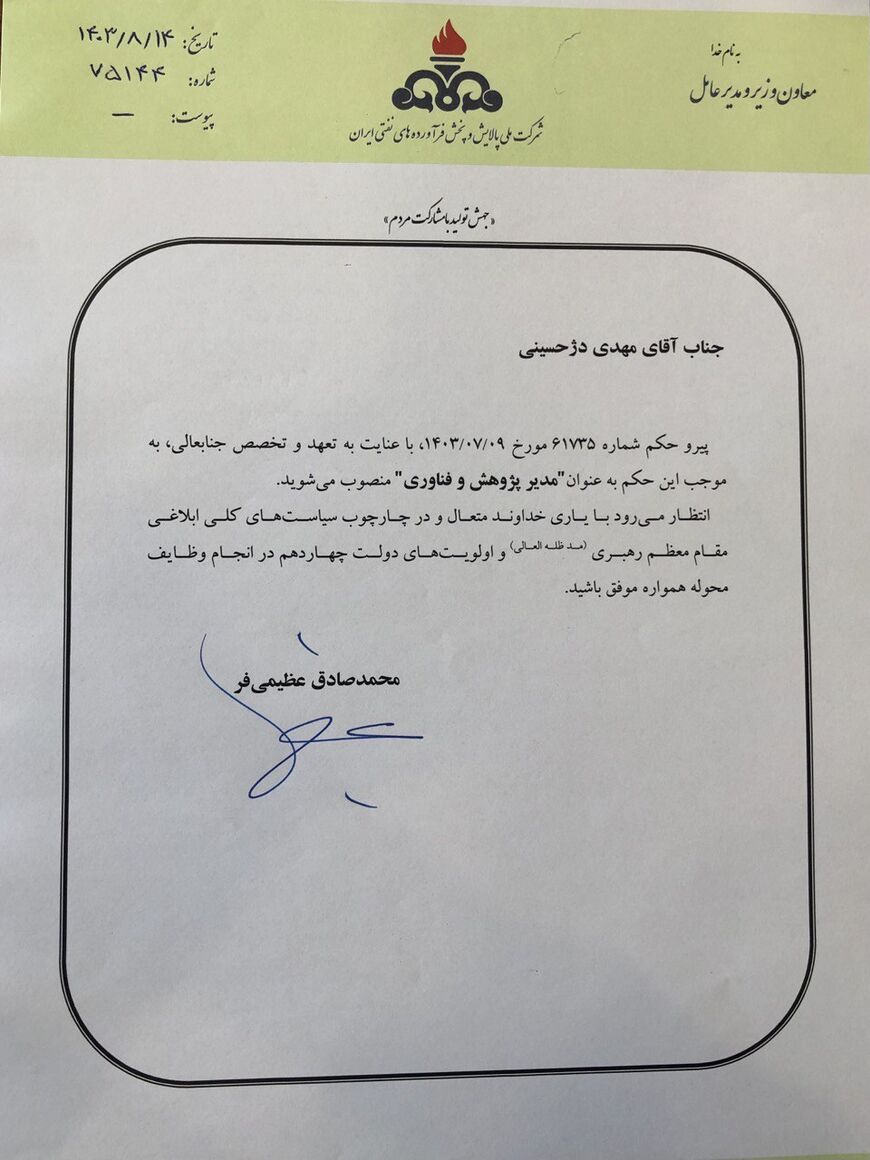 به نام خدا
معاون وزیر و مدیر عامل
شرکت ملی پالایش و پخش فرآورده های نفتی ایران
تاریخ: ۱۴۰۳/۸/۱۴
شماره: ۷۵۱۴۴
پیوست: —
«جهش تولید با مشارکت مردم»
جناب آقای مهدی دژحسینی
پیرو حکم شماره ۶۱۷۳۵ مورخ ۱۴۰۳/۰۷/۰۹، با عنایت به تعهد و تخصص جنابعالی، به
موجب این حکم به عنوان"مدیر پژوهش و فناوری" منصوب می‌شوید.
انتظار می‌رود با یاری خداوند متعال و در چارچوب سیاست‌های کلی ابلاغی
مقام معظم رهبری (مد ظله العالی) و اولویت‌های دولت چهاردهم در انجام وظایف
محوله همواره موفق باشید.
محمدصادق عظیمی‌فر